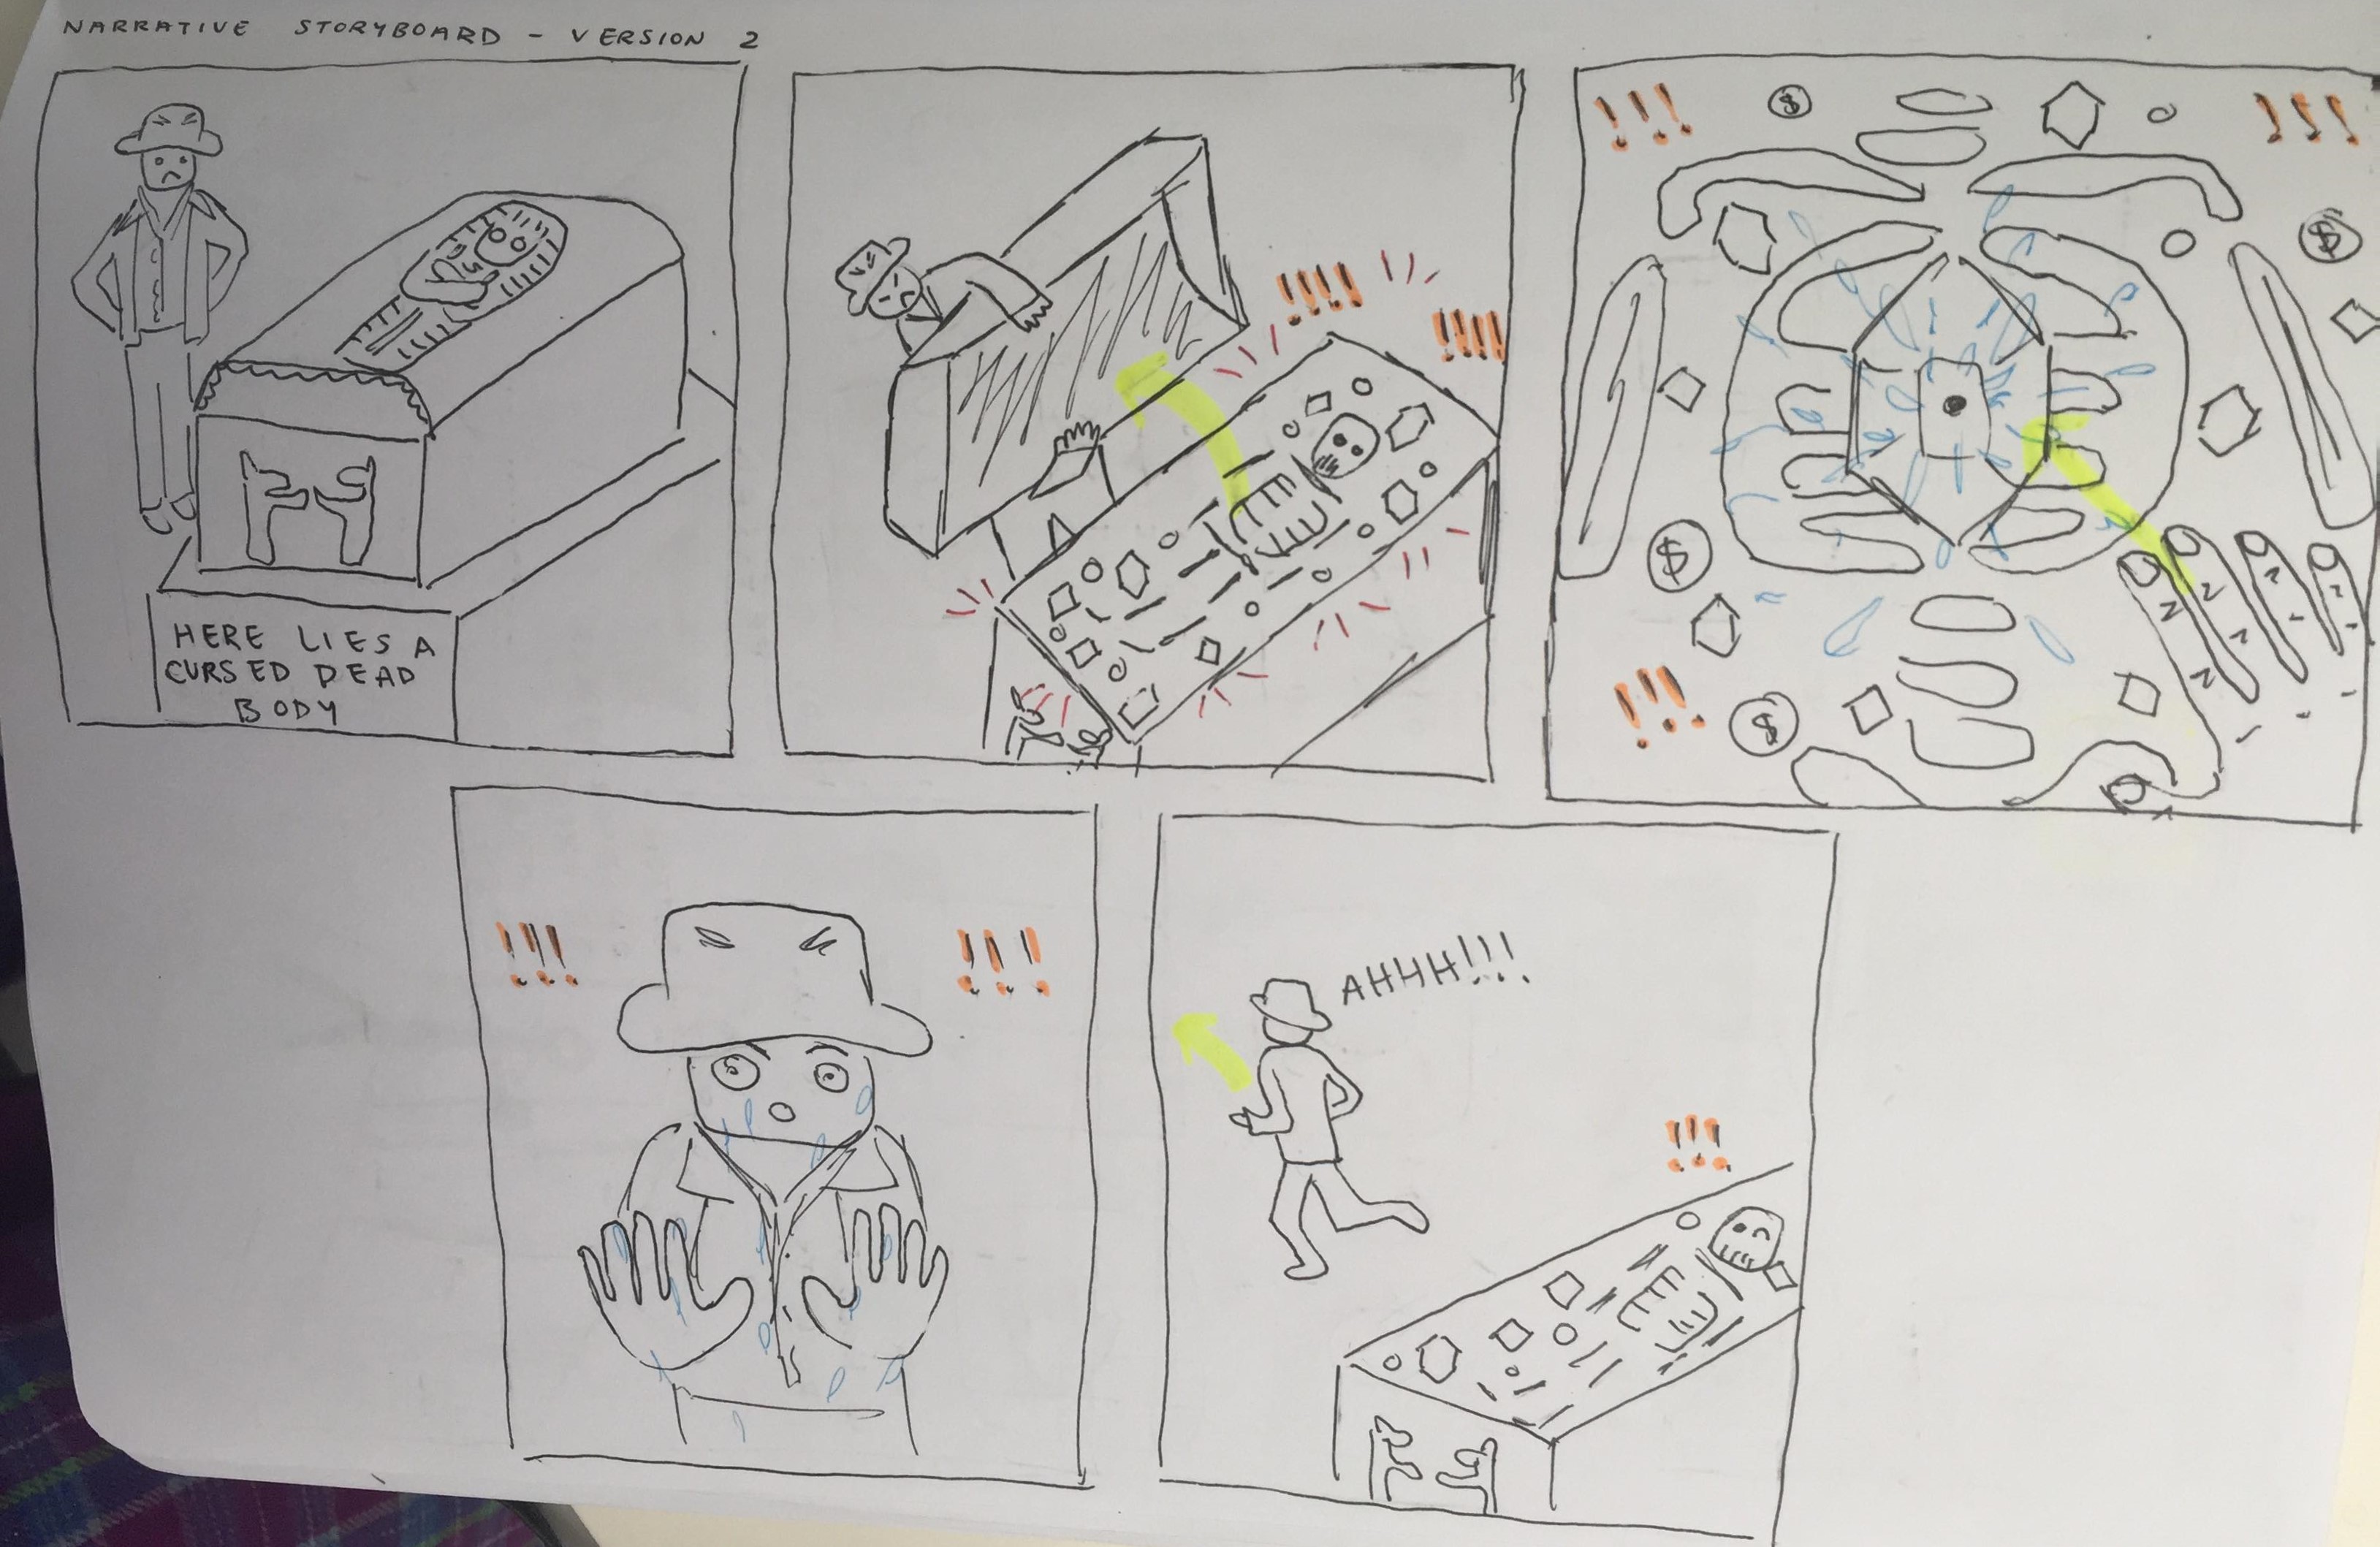 NARRATIVE STORYBOARD - VERSION 2
HERE LIES A
CURSED DEAD
BODY
!!!!
!!!!
!!!
$
!!!
$
$
!!!
$
!!!
!!!
AHHH!!!
!!!